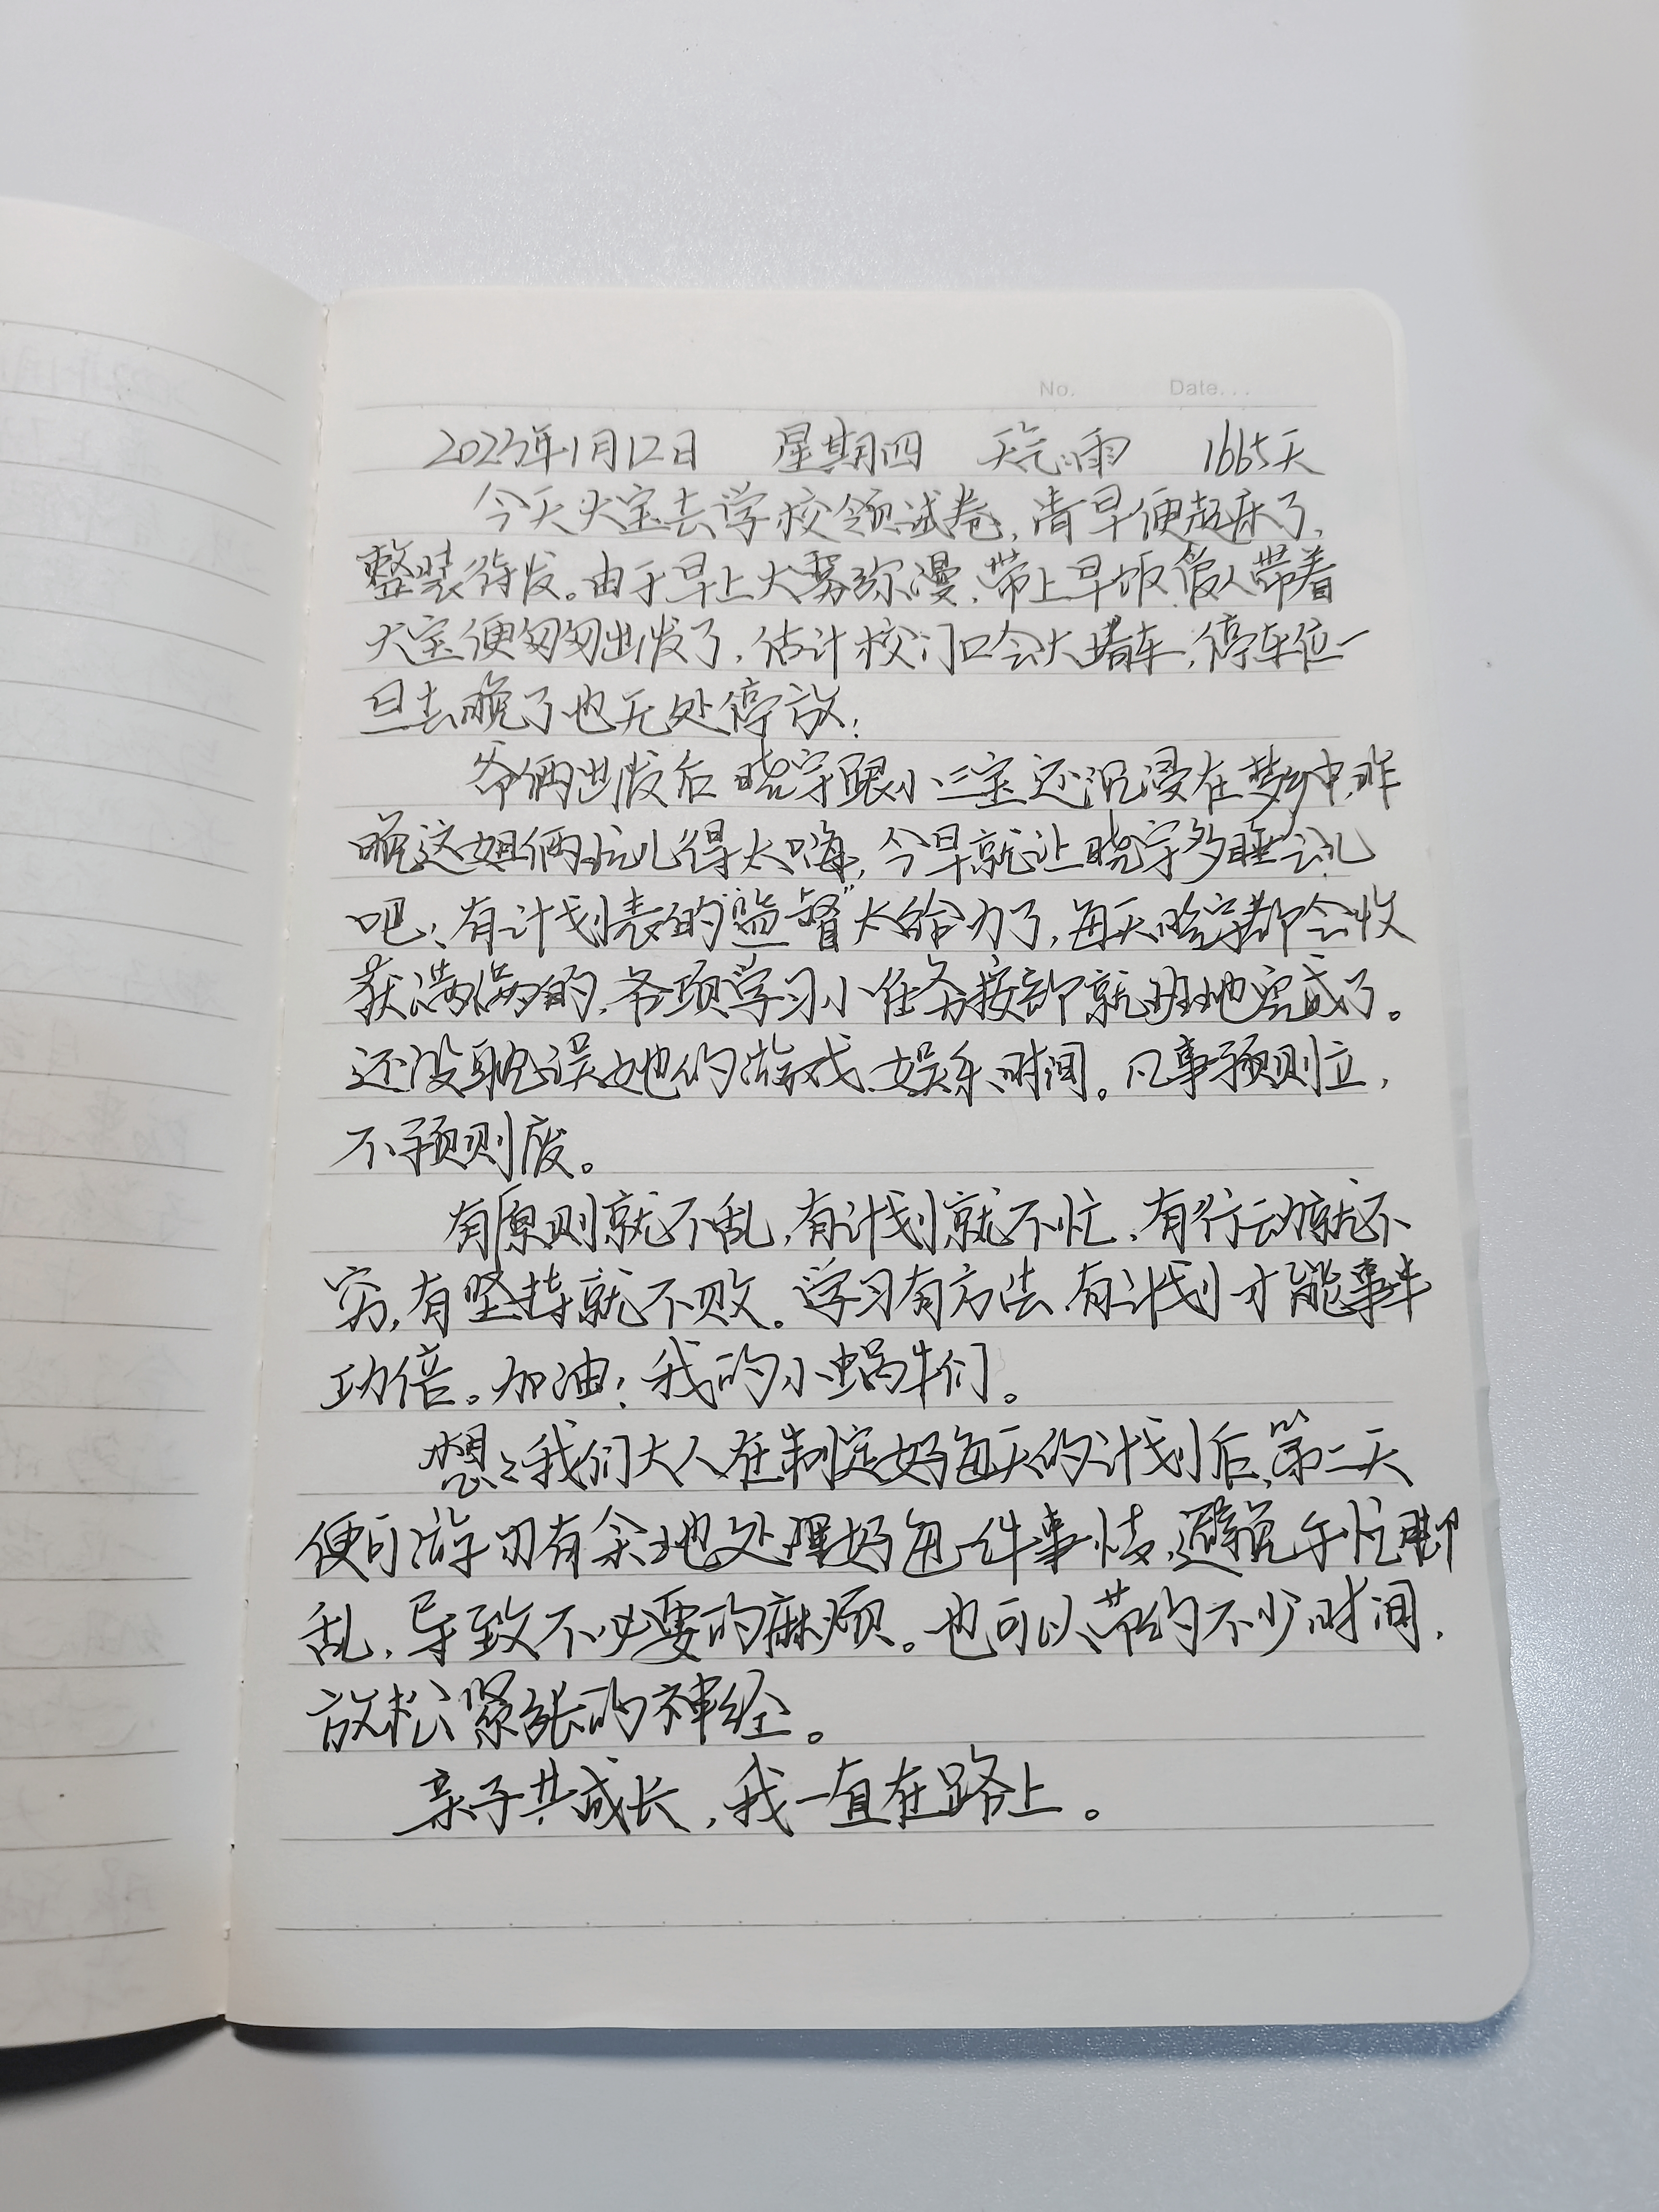 No. Date...
2023年1月12日 星期四 天气:雨 1665天
今天大宝去学校领试卷,清早便起床了,
整装待发。由于早上大雾弥漫,带上早饭,爸人带着
大宝便匆匆出发了,估计校门口会大堵车,停车位一
旦去晚了也无处停放;
爷俩出发后晓宇跟小三宝还沉浸在梦乡中,昨
晚这姐俩玩儿得太嗨,今早就让晓宇多睡会儿
吧;有计划表的"监督"太给力了,每天晓宇都会收
获满满的,各项学习小任务按部就班地完成了。
还没耽误她的游戏、娱乐时间。凡事预则立,
不预则废。
有原则就不乱,有计划就不忙,有行动就不
穷,有坚持就不败。学习有方法,有计划才能事半
功倍。加油!我的小蜗牛们。
想想我们大人在制定好每天的计划后,第二天
便可游刃有余地处理好每一件事情,避免手忙脚
乱,导致不必要的麻烦。也可以节约不少时间,
放松紧张的神经。
亲子共成长,我一直在路上。